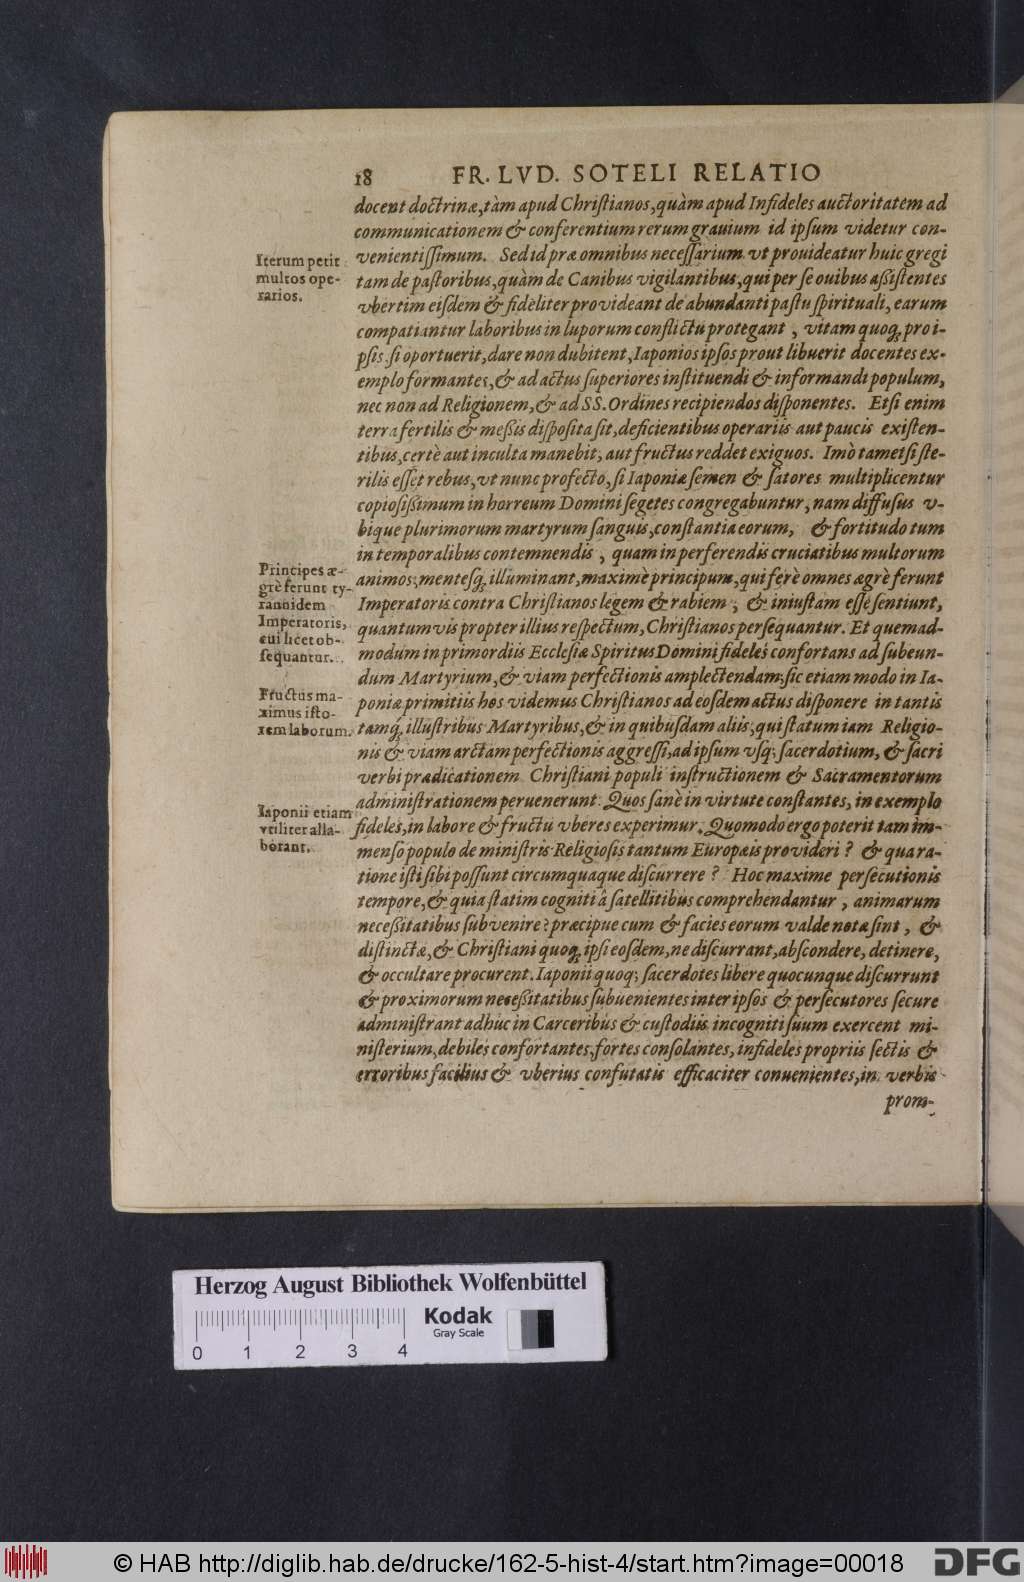 18 FR. LVD. SOTELI RELATIO
docent doctrinæ, tàm apud Chriſtianos, quàm apud Infideles auctoritatem ad
communicationem & conferentium rerum grauium id ipſum videtur con-
venientiſſimum. Sed id præ omnibus neceſſarium vt prouideatur huic gregi
tam de paſtoribus, quàm de Canibus vigilantibus, qui per ſe ouibus aßiſtentes
vbertim eiſdem & fideliter provideant de abundanti paſtu ſpirituali, earum
compatiantur laboribus in luporum conflictu protegant, vitam quoq; pro i-
pſis ſi oportuerit, dare non dubitent, Iaponios ipſos prout libuerit docentes ex-
emplo formantes, & ad actus ſuperiores inſtituendi & informandi populum,
nec non ad Religionem, & ad SS. Ordines recipiendos diſponentes. Etſi enim
terra fertilis & meßis diſpoſita ſit, deficientibus operariis aut paucis exiſten-
tibus, certè aut inculta manebit, aut fructus reddet exiguos. Imò tametſi ſte-
rilis eſſet rebus, vt nunc profecto, ſi Iaponiæ ſemen & ſatores multiplicentur
copioſißimum in horreum Domini ſegetes congregabuntur, nam diffuſus v-
bique plurimorum martyrum ſanguis, conſtantia eorum, & fortitudo tum
in temporalibus contemnendis, quam in perferendis cruciatibus multorum
animos, menteſq; illuminant, maximè principum, qui ferè omnes ægrè ferunt
Imperatoris contra Chriſtianos legem & rabiem, & iniuſtam eſſe ſentiunt,
quantumvis propter illius reſpectum, Chriſtianos perſequantur. Et quemad-
modum in primordiis Eccleſiæ Spiritus Domini fideles confortans ad ſubeun-
dum Martyrium, & viam perfectionis amplectendam; ſic etiam modo in Ia-
poniæ primitiis hos videmus Chriſtianos ad eoſdem actus diſponere in tantis
tamq́; illuſtribus Martyribus, & in quibuſdam aliis, qui ſtatum iam Religio-
nis & viam arctam perfectionis aggreſſi, ad ipſum vſq; ſacerdotium, & ſacri
verbi prædicationem Chriſtiani populi inſtructionem & Sacramentorum
adminiſtrationem peruenerunt: Quos ſanè in virtute conſtantes, in exemplo
fideles, in labore & fructu vberes experimur. Quomodo ergo poterit tam im-
menſo populo de miniſtris Religioſis tantum Europæis provideri? & qua ra-
tione iſti ſibi poſſunt circumquaque diſcurrere? Hoc maxime perſecutionis
tempore, & quia ſtatim cogniti â ſatellitibus comprehendantur, animarum
neceßitatibus ſubvenire? præcipue cum & facies eorum valde notæ ſint, &
diſtinctæ, & Chriſtiani quoq; ipſi eoſdem, ne diſcurrant, abſcondere, detinere,
& occultare procurent. Iaponii quoq; ſacerdotes libere quocunque diſcurrunt
& proximorum neceßitatibus ſubuenientes inter ipſos & perſecutores ſecure
adminiſtrant adhuc in Carceribus & cuſtodiis incogniti ſuum exercent mi-
niſterium, debiles confortantes, fortes conſolantes, infideles propriis ſectis &
erroribus facilius & vberius confutatis efficaciter conuenientes, in verbis
prom-
Iterum petit
multos ope-
rarios.
Principes æ-
grè ferunt ty-
rannidem
Imperatoris,
cui licet ob-
ſequantur.
Fructus ma-
ximus iſto-
rem laborum.
Iaponii etiam
vtiliter alla-
borant.
Herzog August Bibliothek Wolfenbüttel
Kodak
Gray Scale
0 1 2 3 4
© HAB http://diglib.hab.de/drucke/162-5-hist-4/start.htm?image=00018
DFG